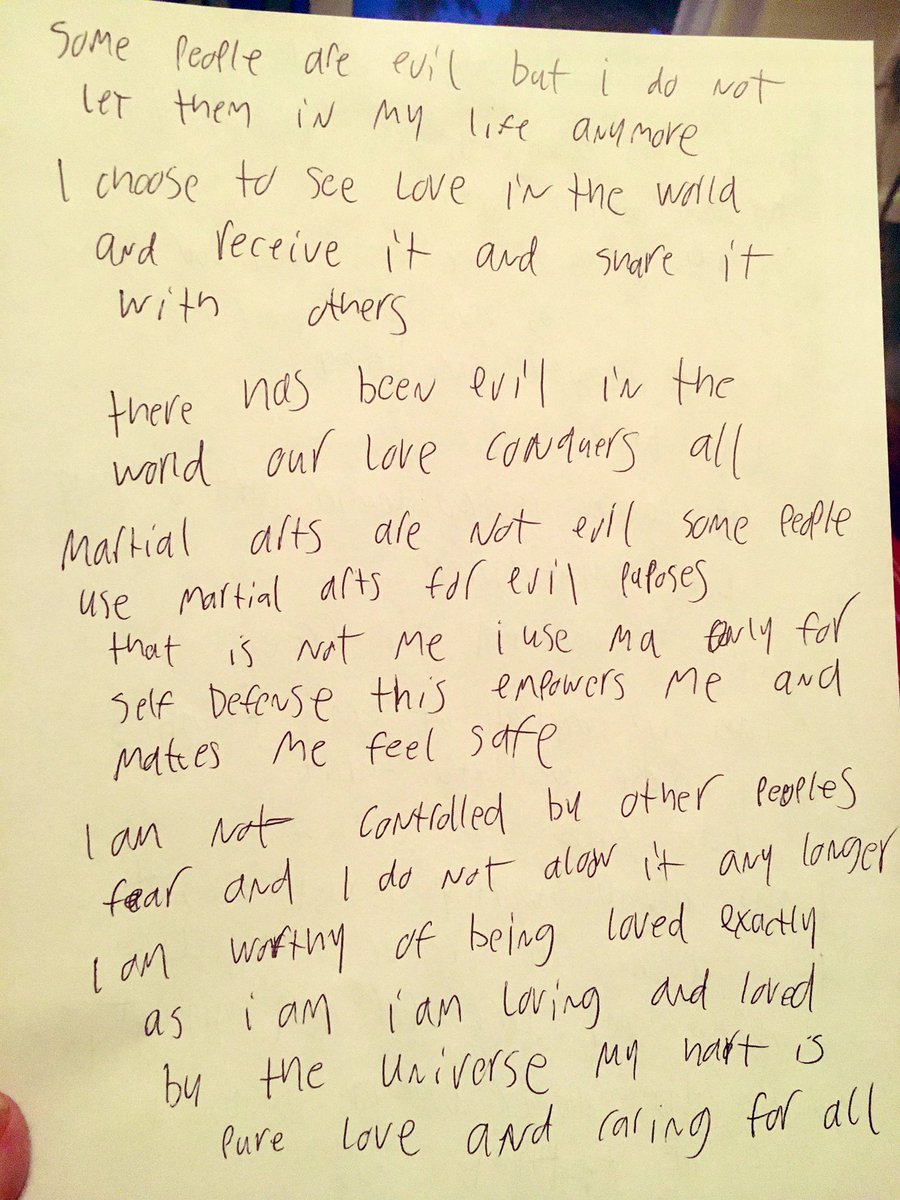 Some people are evil but i do not
let them in my life anymore
I choose to see love in the world
and receive it and share it
with others
there has been evil in the
world our love conquers all
Martial arts are not evil some people
use martial arts for evil puposes
that is not me i use ma only for
self Defense this empowers me and
makes me feel safe
I am not controlled by other peoples
fear and I do not alow it any longer
I am worthy of being loved exactly
as i am i am loving and loved
by the universe my hart is
pure love and caring for all